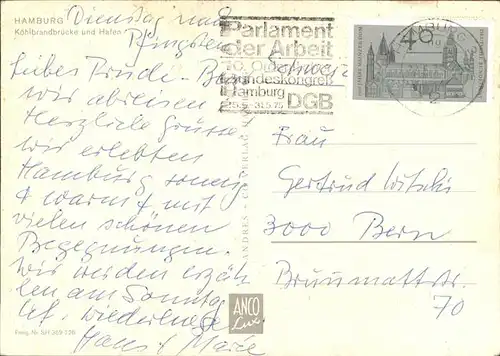 HAMBURG
Köhlbrandbrücke und Hafen
Dienstag nach
Pfingsten
Liebes Trudi - Bevor
wir abreisen
Herzliche Grüsse
wir erlebten
Hamburg sonnig
+ warm + mit
vielen schönen
Begegnungen.
Wir werden erzäh-
len am Sonntag
Auf Wiedersehen
Hans + Marie
Parlament
der Arbeit
10. Ordentlicher
Bundeskongreß
Hamburg
25.5.-31.5.75 DGB
HAMBURG
40
1000 JAHRE MAINZER DOM
DEUTSCHE BUNDESPOST
ANCO
Lux
Frau
Gertrud Witschi
3000 Bern
Brunnmattstr.
70